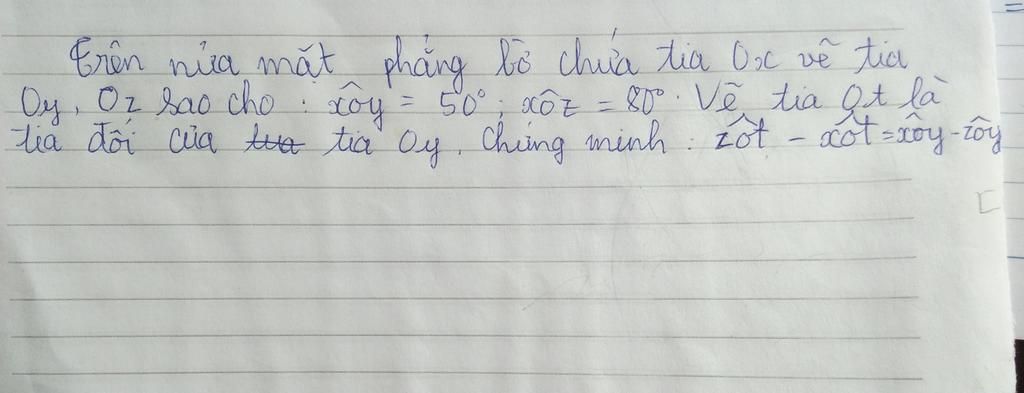 Trên nửa mặt phẳng bờ chứa tia Ox vẽ tia
Oy, Oz sao cho : xÔy = 50°; xÔz = 80°. Vẽ tia Ot là
tia đối của tia Oy. Chứng minh : zÔt - xÔt = xÔy - zÔy